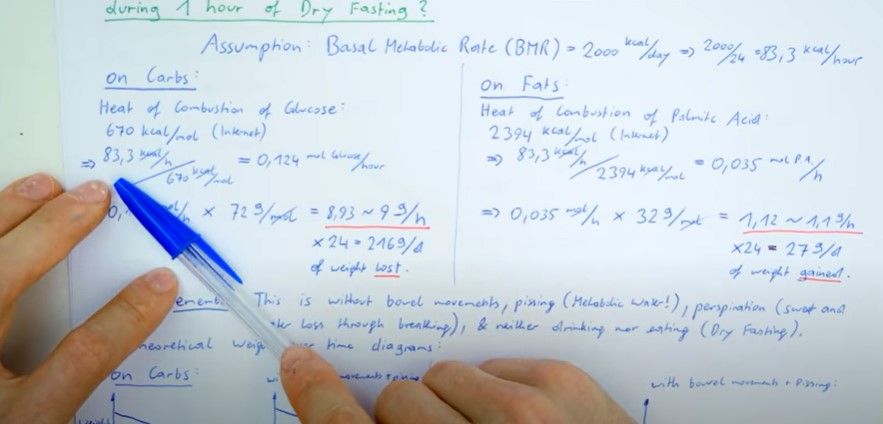 during 1 hour of Dry Fasting?
Assumption: Basal Metabolic Rate (BMR) = 2000 kcal/day => 2000/24 = 83,3 kcal/hour
on Carbs:
Heat of Combustion of Glucose:
670 kcal/mol (Internet)
=> 83,3 kcal/h / 670 kcal/mol = 0,124 mol Glucose/hour
x 72 g/mol = 8,93 ~ 9 g/h
x24 = 216 g/d
of weight lost.
on Fats:
Heat of Combustion of Palmitic Acid:
2394 kcal/mol (Internet)
=> 83,3 kcal/h / 2394 kcal/mol = 0,035 mol P.A./h
=> 0,035 mol/h x 32 g/mol = 1,12 ~ 1,1 g/h
x24 = 27 g/d
of weight gained.
This is without bowel movements, pissing (Metabolic Water!), perspiration (sweat and
loss through breathing), & neither drinking nor eating (Dry Fasting).
time diagrams:
on Carbs:
with bowel movements + pissing: